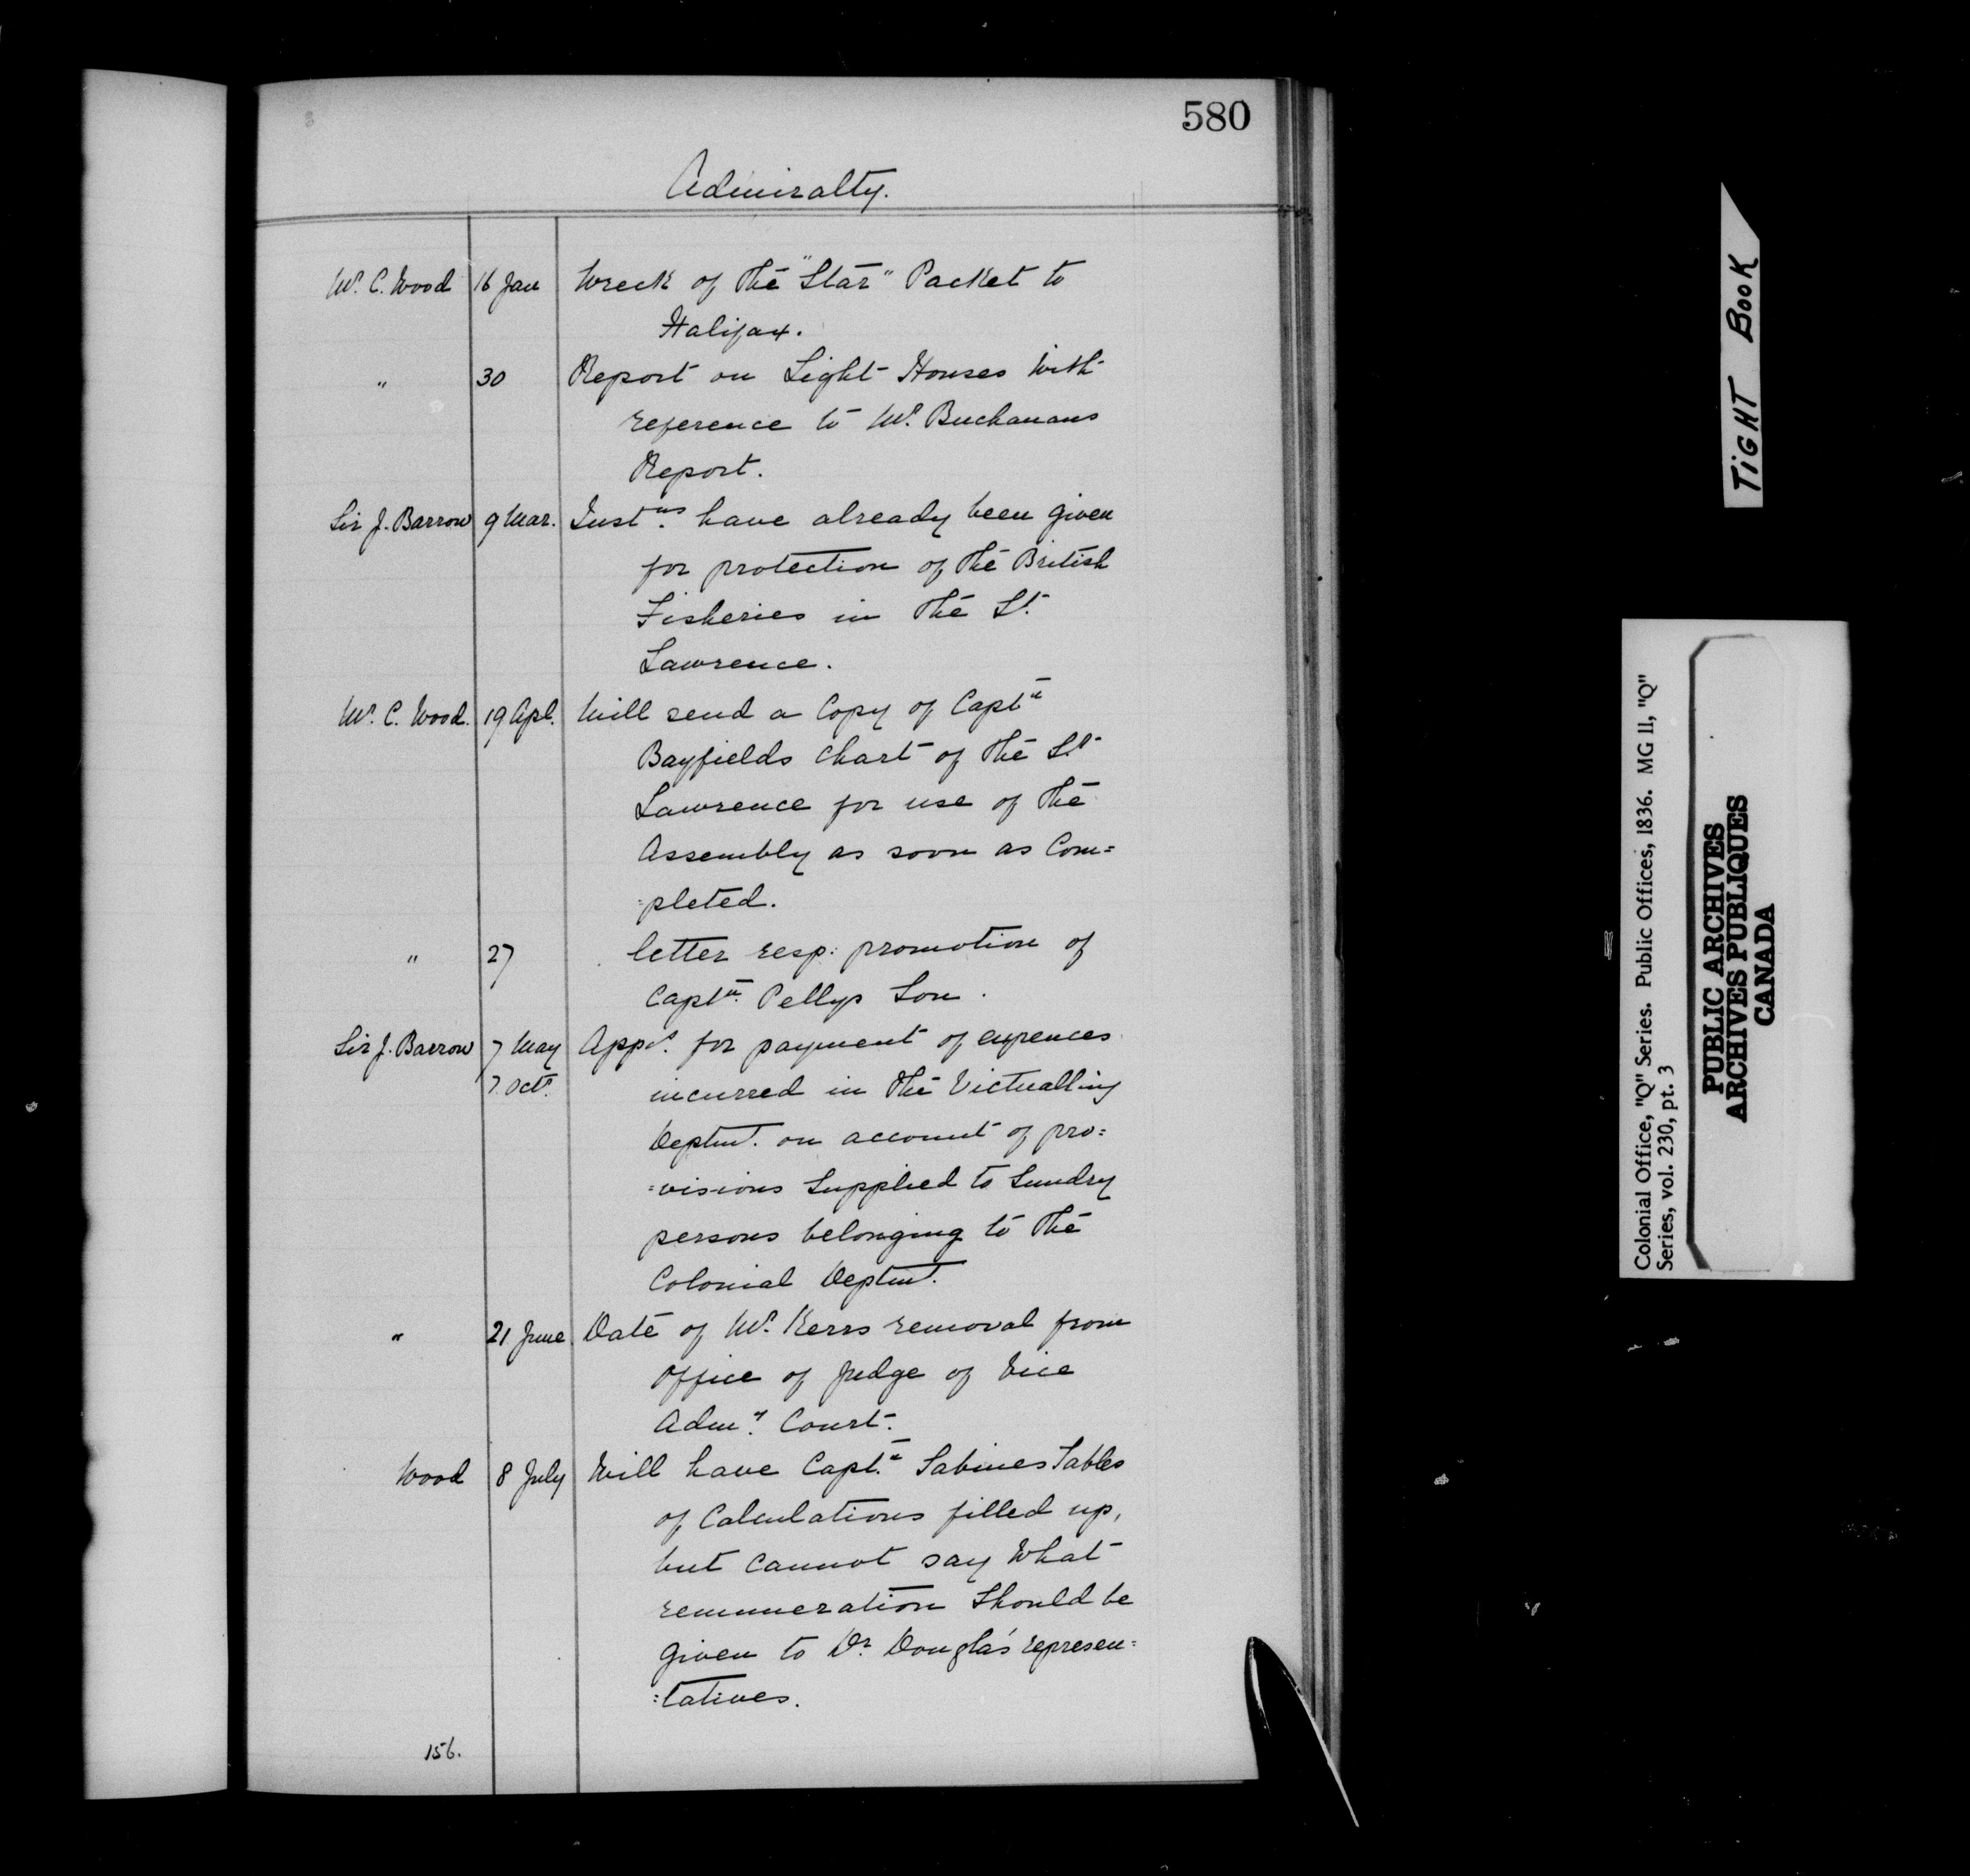 580
Admiralty.
Mr. C. Wood 16 Jan Wreck of the "Star" Packet to
Halifax.
" 30 Report on Light Houses with
reference to Mr. Buchanans
Report.
Sir J. Barrow 9 Mar. Instns. have already been given
for protection of the British
Fisheries in the St.
Lawrence.
Mr. C. Wood. 19 Apl. Will send a Copy of Captn
Bayfields Chart of the St.
Lawrence for use of the
Assembly as soon as Com=
=pleted.
" 27 letter resp: promotion of
Captn. Pellys Son.
Sir J. Barrow 7 May Appn. for payment of expences
7. Octr. incurred in the Victualling
Deptmt. on account of pro=
=visions Supplied to Sundry
persons belonging to the
Colonial Deptmt.
" 21 June. Date of Mr. Kerrs removal from
Office of Judge of Vice
Admy. Court.
Wood 8 July Will have Captn. Sabines Tables
of Calculations filled up,
but cannot say what
remuneration should be
given to Dr. Dougla's represen=
=tatives.
156.
TIGHT BOOK
Colonial Office, "Q" Series. Public Offices, 1836. MG 11, "Q"
Series, vol. 230, pt. 3
PUBLIC ARCHIVES
ARCHIVES PUBLIQUES
CANADA